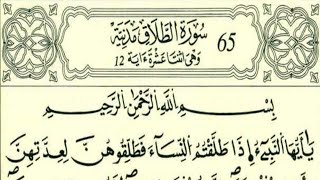 سُورَةُ الطَّلَاقِ مَدَنِيَّة 65
وَهِيَ اثْنَتَا عَشْرَةَ ءَايَة 12
بِسْمِ اللَّهِ الرَّحْمَٰنِ الرَّحِيمِ
يَٰأَيُّهَا النَّبِيءُ إِذَا طَلَّقْتُمُ النِّسَآءَ فَطَلِّقُوهُنَّ لِعِدَّتِهِنَّ